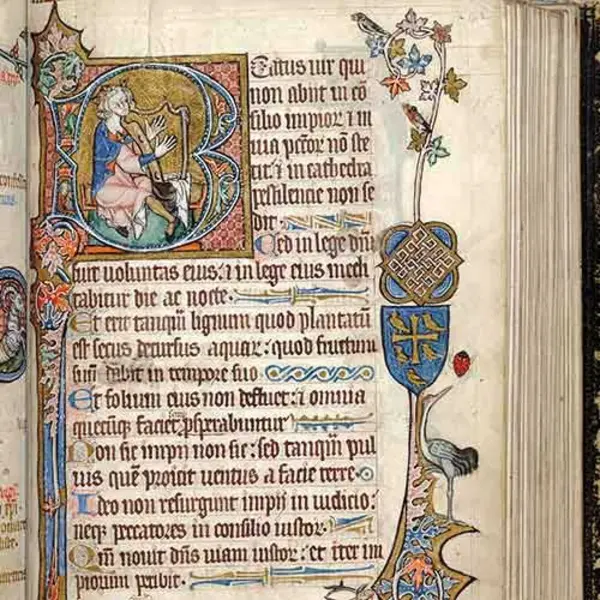 Beatus uir qui
non abiit in cō
silio impior ⁊ in
uia pctor nō ste
tit: ⁊ in cathedra
pestilencie non se
dit.
Sed in lege dn̄i
fuit uoluntas eius: ⁊ in lege eius medi
tabitur die ac nocte.
Et erit tanqm̄ lignum quod plantatū
est secus decursus aquar: quod fructum
suū dabit in tempore suo
Et folium eius non defluet: ⁊ omnia
quecūq; faciet psperabuntur
Non sic impii non sic: sed tanqm̄ pul
uis quē proicit uentus a facie terre
Ideo non resurgunt impii in iudicio:
neq; peccatores in consilio iustor.
Qm̄ nouit dn̄s uiam iustor: et iter im
piorum peribit.